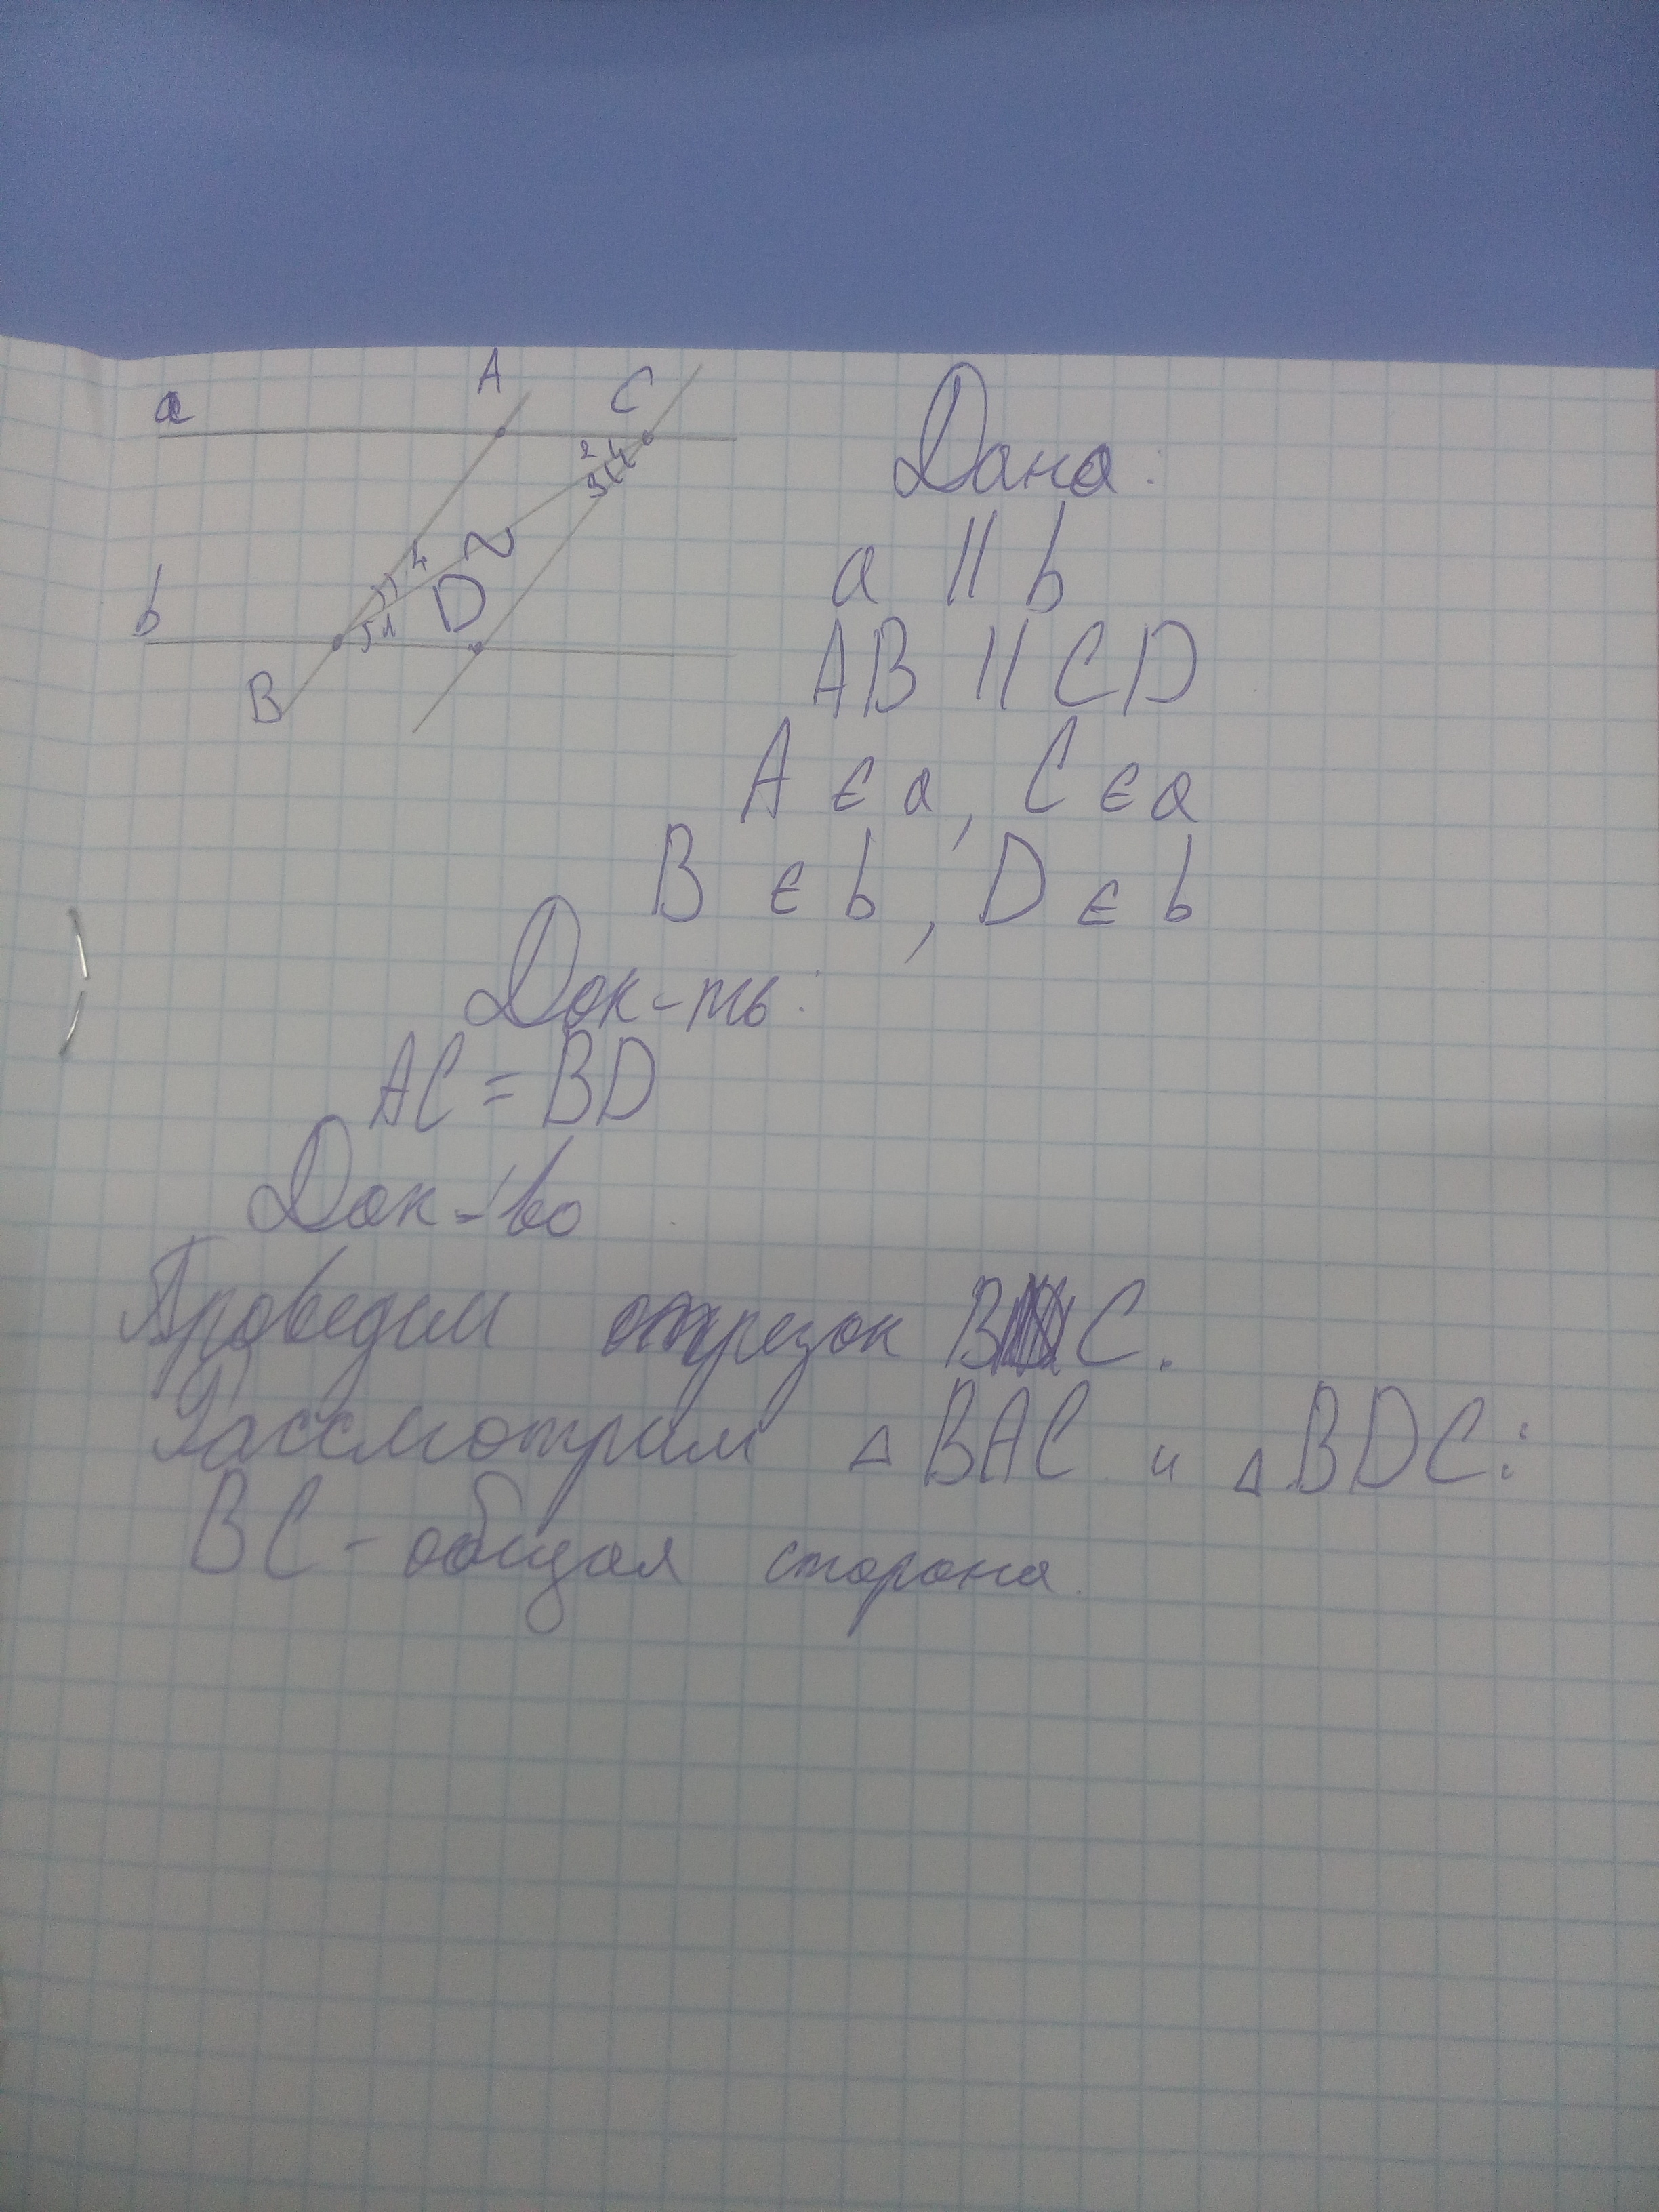 a
A
C
2
3
4
4
1
D
b
B
Дана:
a || b
AB || CD
A ϵ a, C ϵ a
B ϵ b, D ϵ b
Док-ть:
AC = BD
Док-во
Проведем отрезок BC.
Рассмотрим △ BAC и △ BDC:
BC - общая сторона.